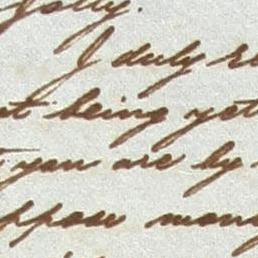 folly.
I duly re
at being yet
you are by
ppose many